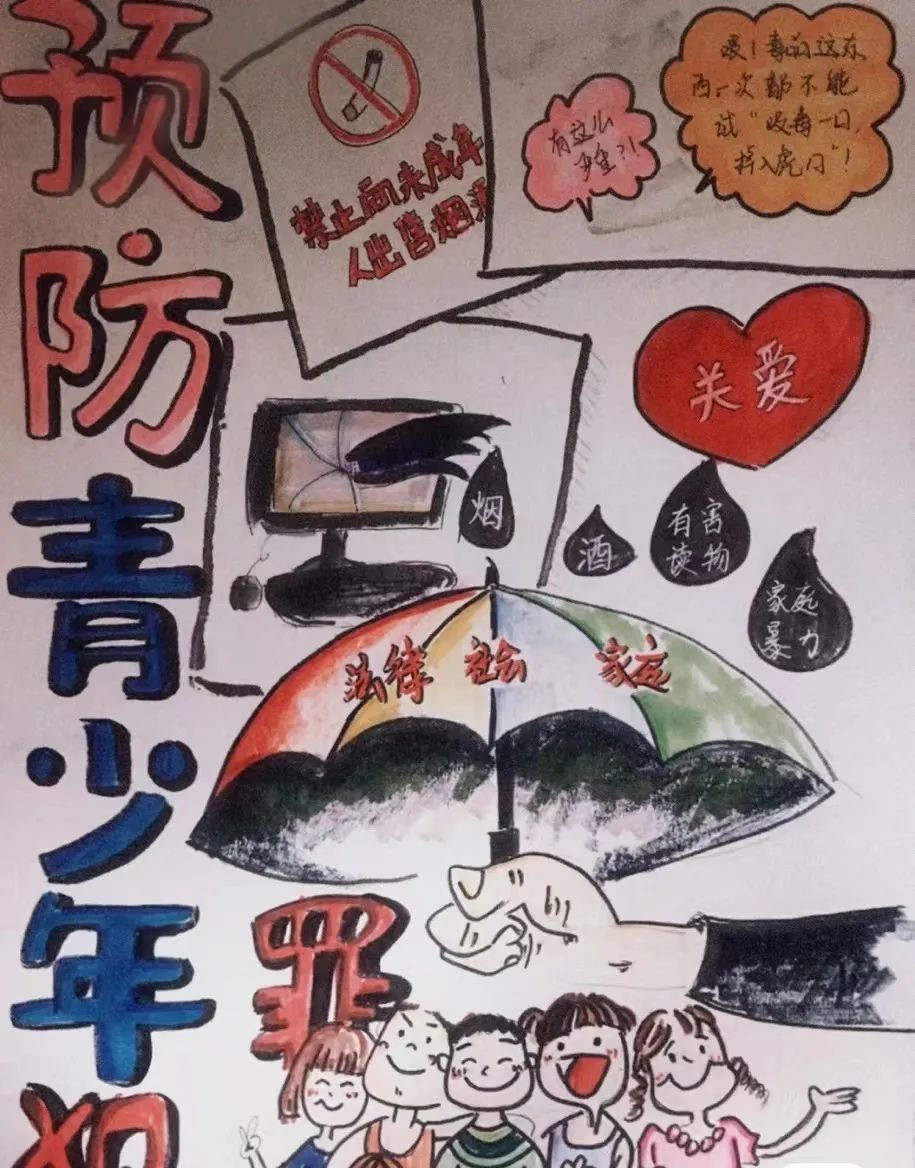 预防青少年犯
罪
禁止向未成年
人出售烟酒
有这么
嗳！毒品这东
西一次都不能
试“吸毒一口，
掉入虎口”！
关爱
烟
酒
有害
读物
家庭
暴力
法律 社会 家庭